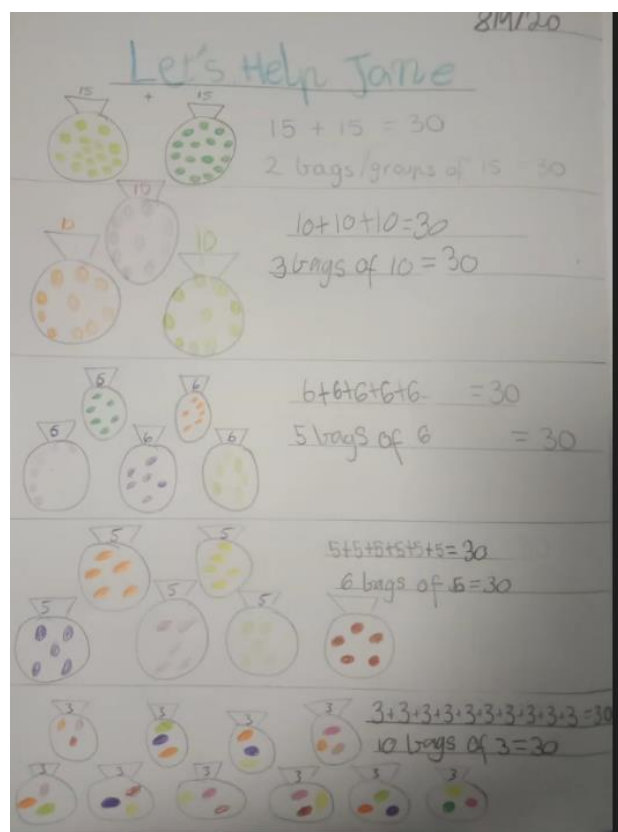 8M/20
Let's Help Jane
15 + 15
15 + 15 = 30
2 bags/groups of 15 = 30
10
10 10
10+10+10=30
3 bags of 10 = 30
6 6
6 6 6
6+6+6+6+6 = 30
5 bags of 6 = 30
5 5
5 5 5
5+5+5+5+5+5=30
6 bags of 5=30
3 3 3 3
3+3+3+3+3+3+3+3+3+3=30
10 bags of 3=30
3 3 3 3 3 3